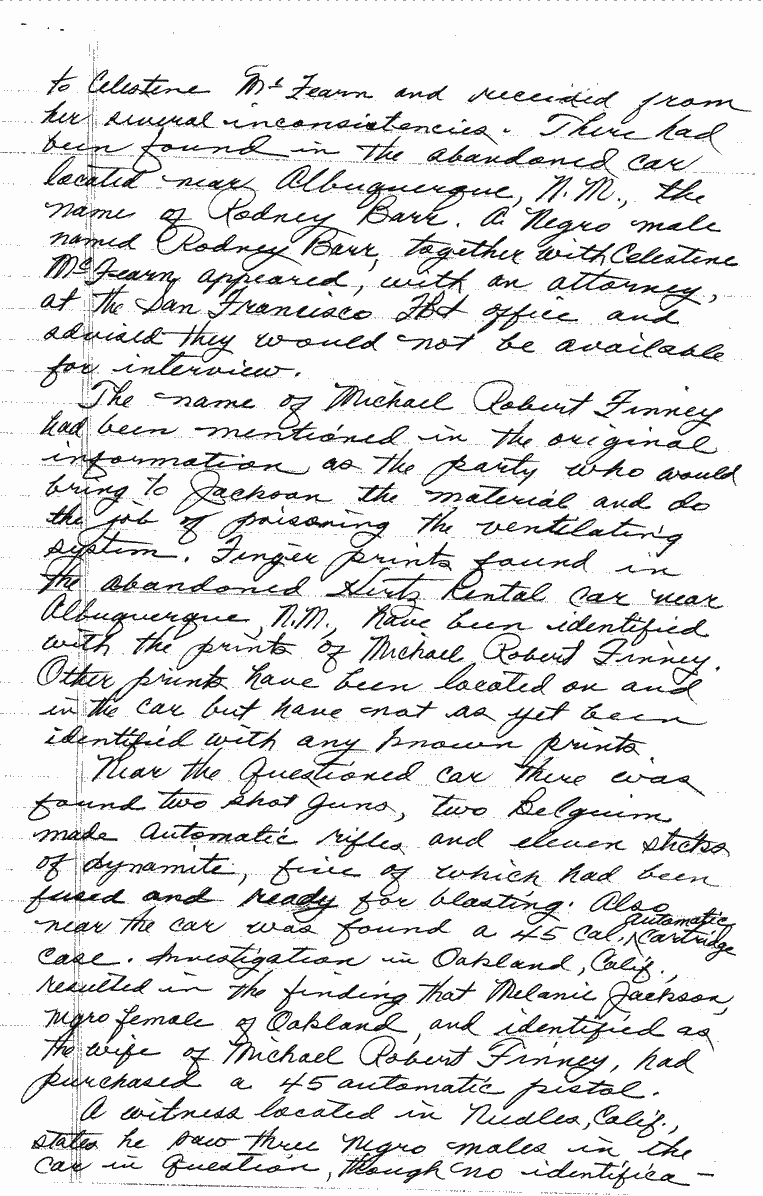 to Celestine McFearn and received from
her several inconsistencies. There had
been found in the abandoned car
located near Albuquerque, N.M., the
name of Rodney Barr. A Negro male
named Rodney Barr, together with Celestine
McFearn appeared, with an attorney,
at the San Francisco FBI office and
advised they would not be available
for interview.
The name of Michael Robert Finney
had been mentioned in the original
information as the party who would
bring to Jackson the material and do
the job of poisoning the ventilating
system. Finger prints found in
the abandoned Hertz Rental car near
Albuquerque, N.M., have been identified
with the prints of Michael Robert Finney.
Other prints have been located on and
in the car but have not as yet been
identified with any known prints
Near the questioned car there was
found two shot guns, two Belguim
made automatic rifles and eleven sticks
of dynamite, five of which had been
fused and ready for blasting. Also
near the car was found a 45 cal. automatic cartridge
case. Investigation in Oakland, Calif.,
resulted in the finding that Melanie Jackson,
negro female of Oakland, and identified as
the wife of Michael Robert Finney, had
purchased a 45 automatic pistol.
A witness located in Nedles, Calif.,
states he saw three negro males in the
car in question, though no identifica-